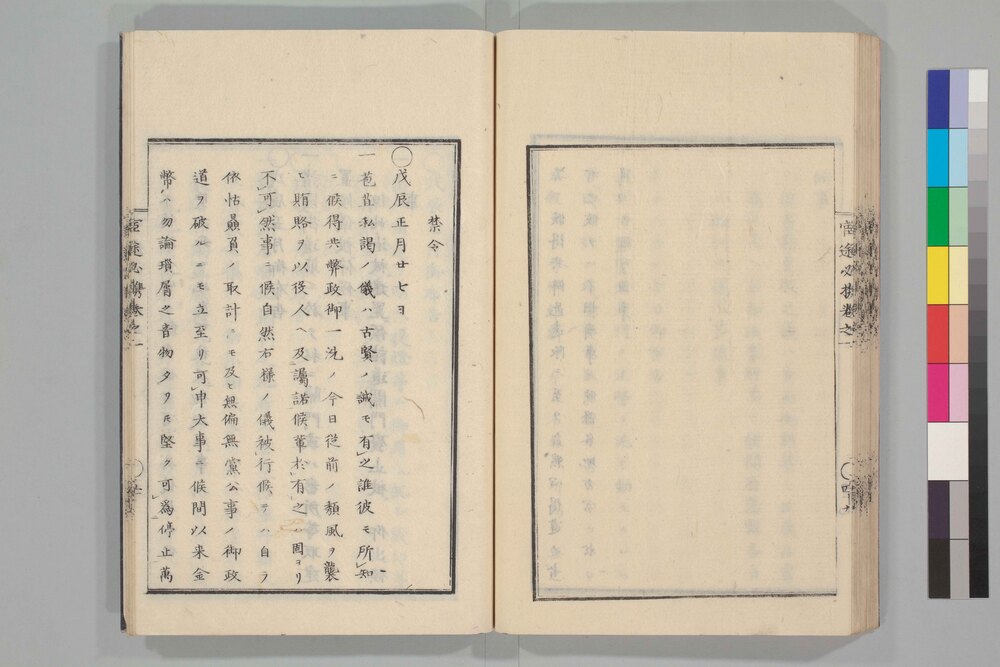 官途必携巻之一
禁令
○戊辰正月廿七日
一苞苴私謁ノ儀ハ古賢ノ誡モ有之誰彼モ所知
ニ候得共弊政御一洗ノ今日従前ノ頽風ヲ襲
ヒ賄賂ヲ以役人ヘ及嘱託候輩於有之ハ固ヨリ
不可然事ニ候自然右様ノ儀被行候テハ自ラ
依怙贔負ノ取計ニモ及ヒ無偏無黨公事ノ御政
道ヲ破ルニモ立至リ可申大事ニ候間以来金
幣ハ勿論瑣屑之音物タリトモ堅ク可為停止萬
官途必携巻之一